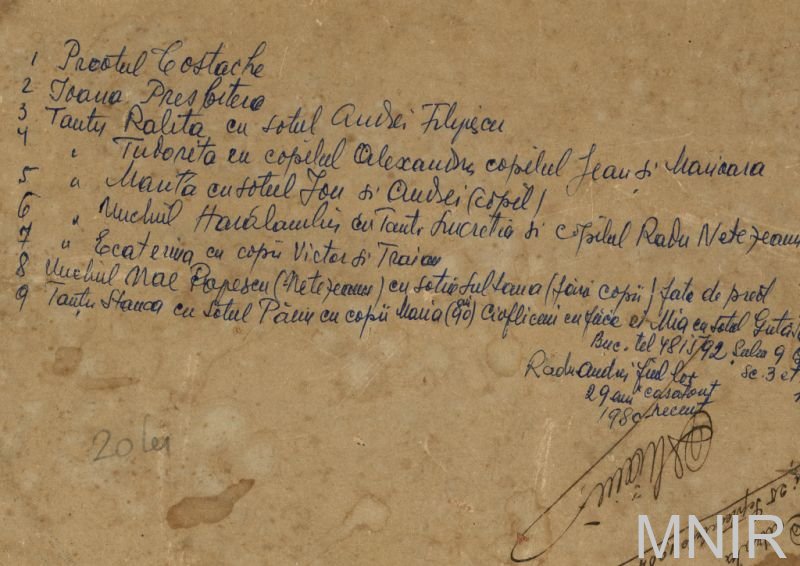 1 Preotul Costache
2 Ioana Presbitera
3 Tanti Ralița cu soțul Andrei Filipescu
4 " Tudorița cu copilul Alexandru, copilul Jean și Marioara
5 " Manta cu soțul Ion și Andrei (copil)
6 " Unchiul Haralambie cu Tanti Lucreția și copilul Radu Netezeanu
7 " Ecaterina cu copii Victor și Traian
8 Unchiul Nae Popescu (Netezeanu) cu soția Sultana (fără copii) fata de preot
9 Tanti Stanca cu soțul Pănu cu copii Maria Cioflicani cu fiica ei Mia cu soțul
Buc. tel 481592 9
Radu Andrei fiul lor sc. 3 et
29 ani căsătorit
1980 recent
20 lei
28
MNIR